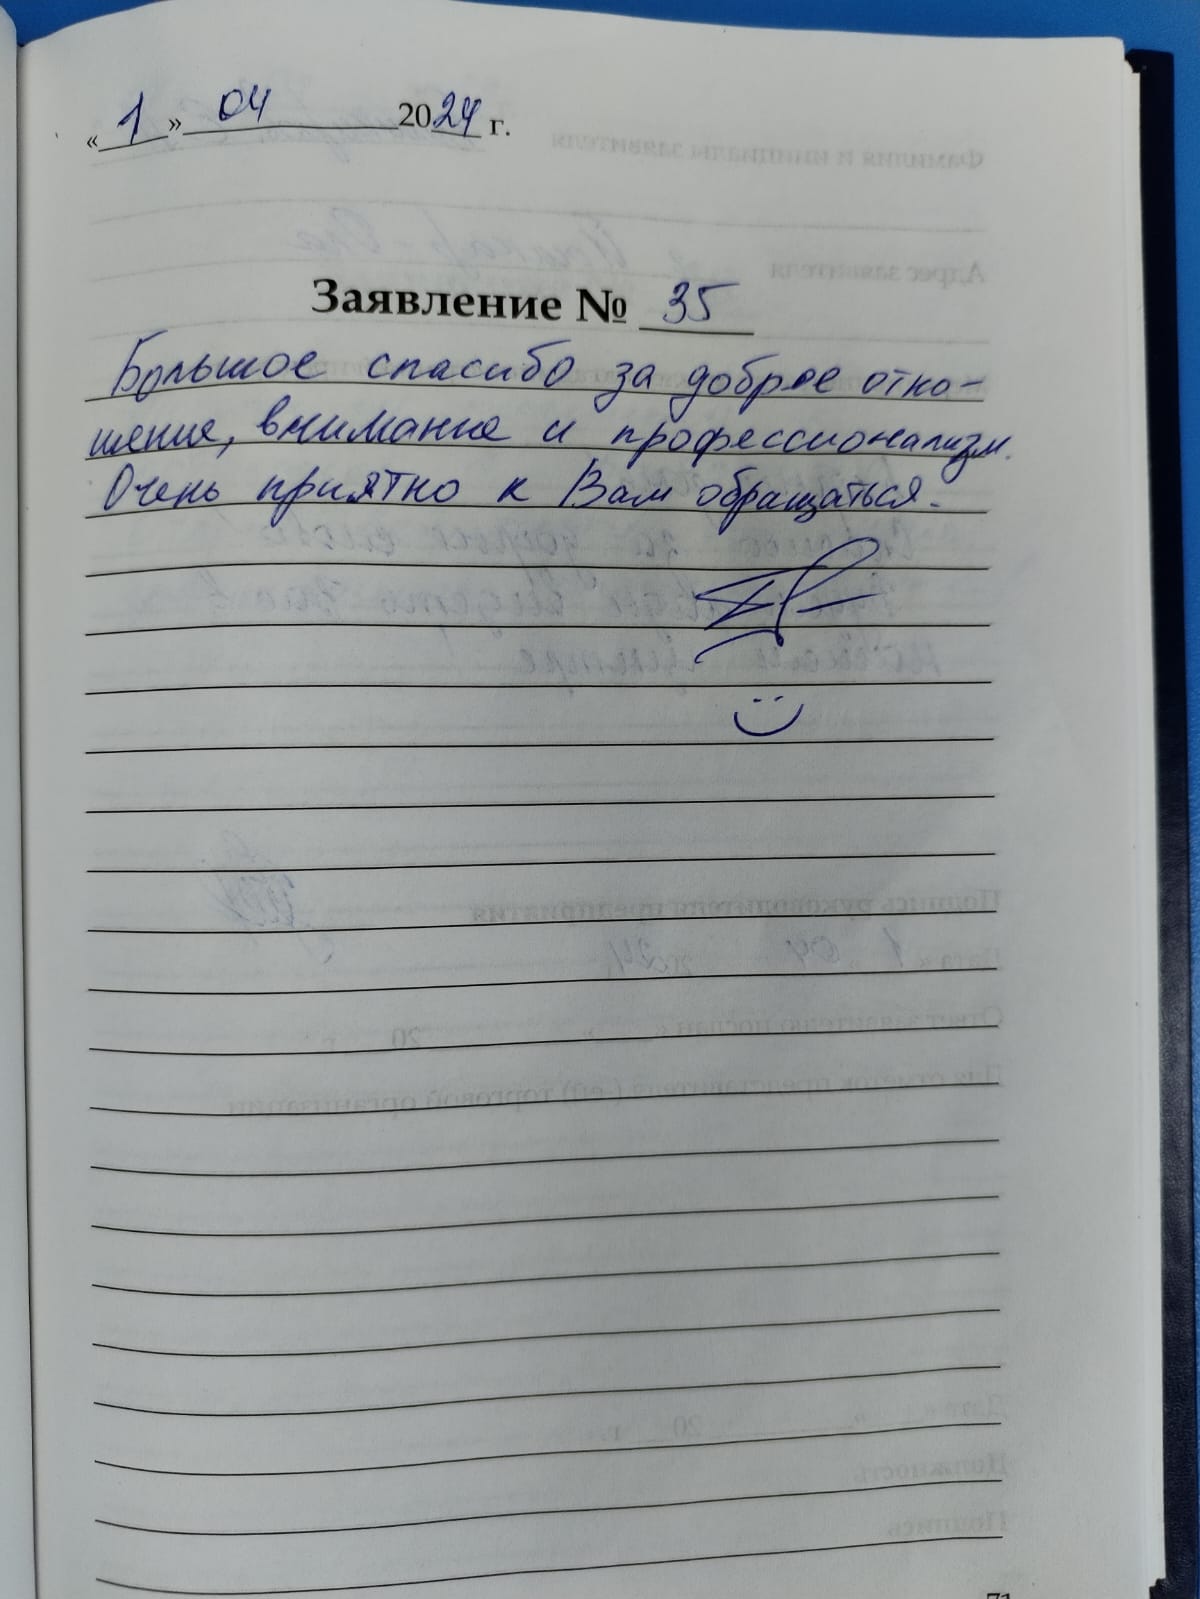 « 1 » 04 2024 г.
Заявление № 35
Большое спасибо за доброе отно-
шение, внимание и профессионализм.
Очень приятно к Вам обращаться.
71